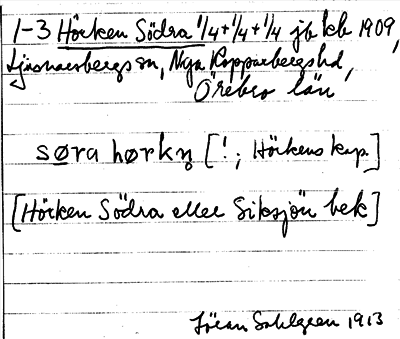 1-3 Hörken Södra 1/4+1/4+1/4 jb kb 1909,
Ljusnarsbergs sn, Nya Kopparbergs hd,
Örebro län
søra hørkn̥ [!; Hörkens kap.]
[Hörken Södra eller Siksjön bek]
Jöran Sahlgren 1913